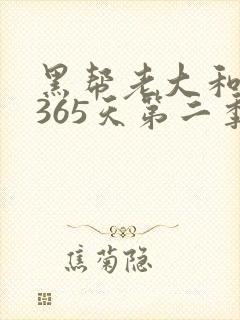 黑帮老大和
365天第二季
焦菊隐